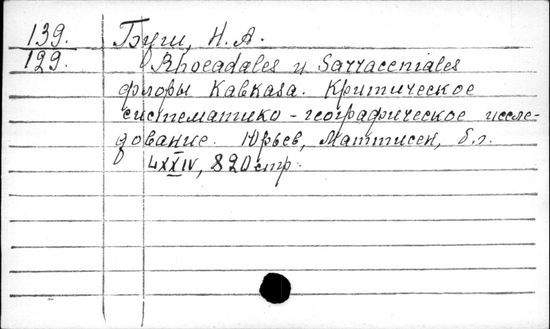 139.
129.
Буш, Н. А.
Rhoeadales и Sarraceniales
флоры Кавказа. Критическое
систематико-географическое иссле-
дование. Юрьев, Маттисен, б.г.
LXXIV, 820 стр.